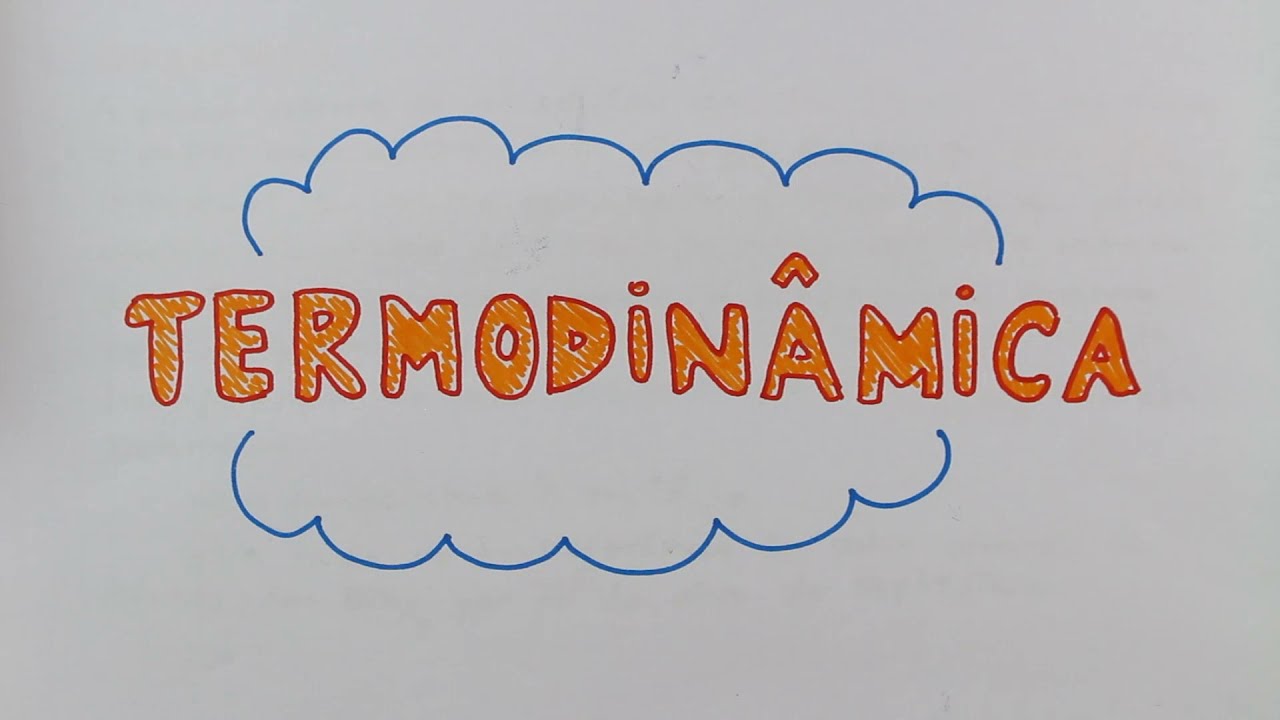 TERMODINÂMICA